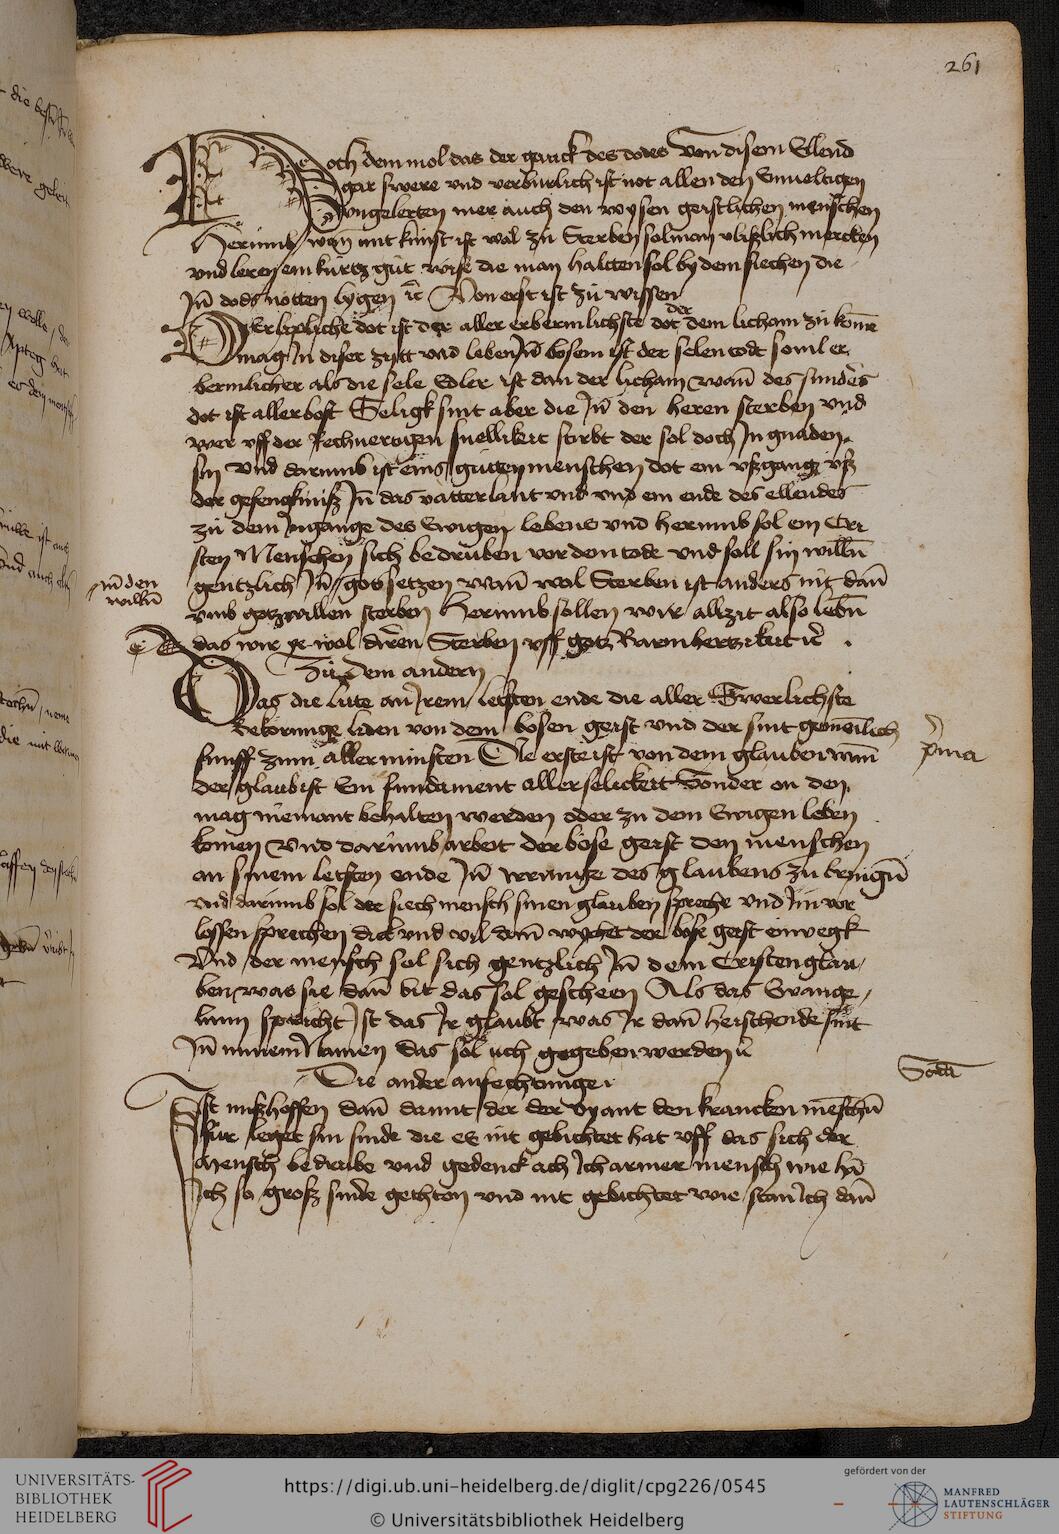 261
Noch dem mol das der ganck des dodes von disem Ellend
gar swere vnd verburlich ist not allen den Einueltigen
vongelerten mer auch den wysen geistlichen menschen
Herumb wan mit kunst ist wal zu Sterben sol man vlißlich mercken
vnd leren ein kurtz gut wise die man haltten sol by dem siechen die
Jn dods notten lygen ꝛc Von erst ist zu wissen
der
Der liplische dot ist der aller erbermlichste dot dem licham zu kome
mag Jn diser zytt vnd leben Jn bosem ist der selen todt so vil er
bermlicher als die sele Edler ist dan der licham wan des sunders
dot ist aller bost Selig sint aber die Jn den heren sterben vnd
wer vff der Rechuertigen snellikeit stirbt der sol doch Jn gnaden
sin vnd darumb ist eins gutten menschen dot ein vßgang vß
der gefengkniß Jn das vatterlant vnd vnd ein ende des ellendes
zu dem Jngange des Ewigen lebens vnd herumb sol ein Cri
sten Menschen sich bedruben vor dem tode vnd soll sin willn
Jn den
willn
gentzlich Jn gots setzen wan wal Sterben ist anders nit dan
vmb gotz willen sterben Herumb sollen wir allzit also lebn
das wir ye wol durren Sterben vff gotz Barmhertzikeit ꝛc
Zu dem andern
Das die lute an Jrem letsten ende die aller Swerlichste
bekorunge liden von dem bosen geist vnd der sint gemeinlich
prima
funff zum aller minsten Die erste ist von dem glauben wan
der glaub ist Ein fundament aller selickeit Sonder on den
mag niemant behalten werden oder zu dem Ewigen leben
komen Vnd darumb arbeit der böse geist den menschen
an sinem letsten ende Jn irrunge des glaubens zu bringn
vnd darumb sol der siech mensch sinen glauben spreche vnd Jm vor
lossen sprechen dick vnd vil dann wychet der böse geist einwegk
Vnd der mensch sol sich gentzlich Jn dem Cristenglau
ben was sie dan bit das sol gescheen Als das Ewange
lium spricht Jst das Jr glaubt was Jr dan heischende sint
Jn minem Namen das sol uch gegeben werden ꝛc
Die ander anfechtunge
Secunda
Jst mißhoffen dan damit der der vyant den krancken menschn
fur leget sin sinde die er nit gebichtet hat vff das sich der
mensch bedrube vnd gedenck ach Jch armer mensch wie han
Jch so groß sinde gethon vnd nit gebichtet wie stan Jch dan
UNIVERSITÄTS-
BIBLIOTHEK
HEIDELBERG
https://digi.ub.uni-heidelberg.de/diglit/cpg226/0545
© Universitätsbibliothek Heidelberg
gefördert von der
MANFRED
LAUTENSCHLÄGER
STIFTUNG